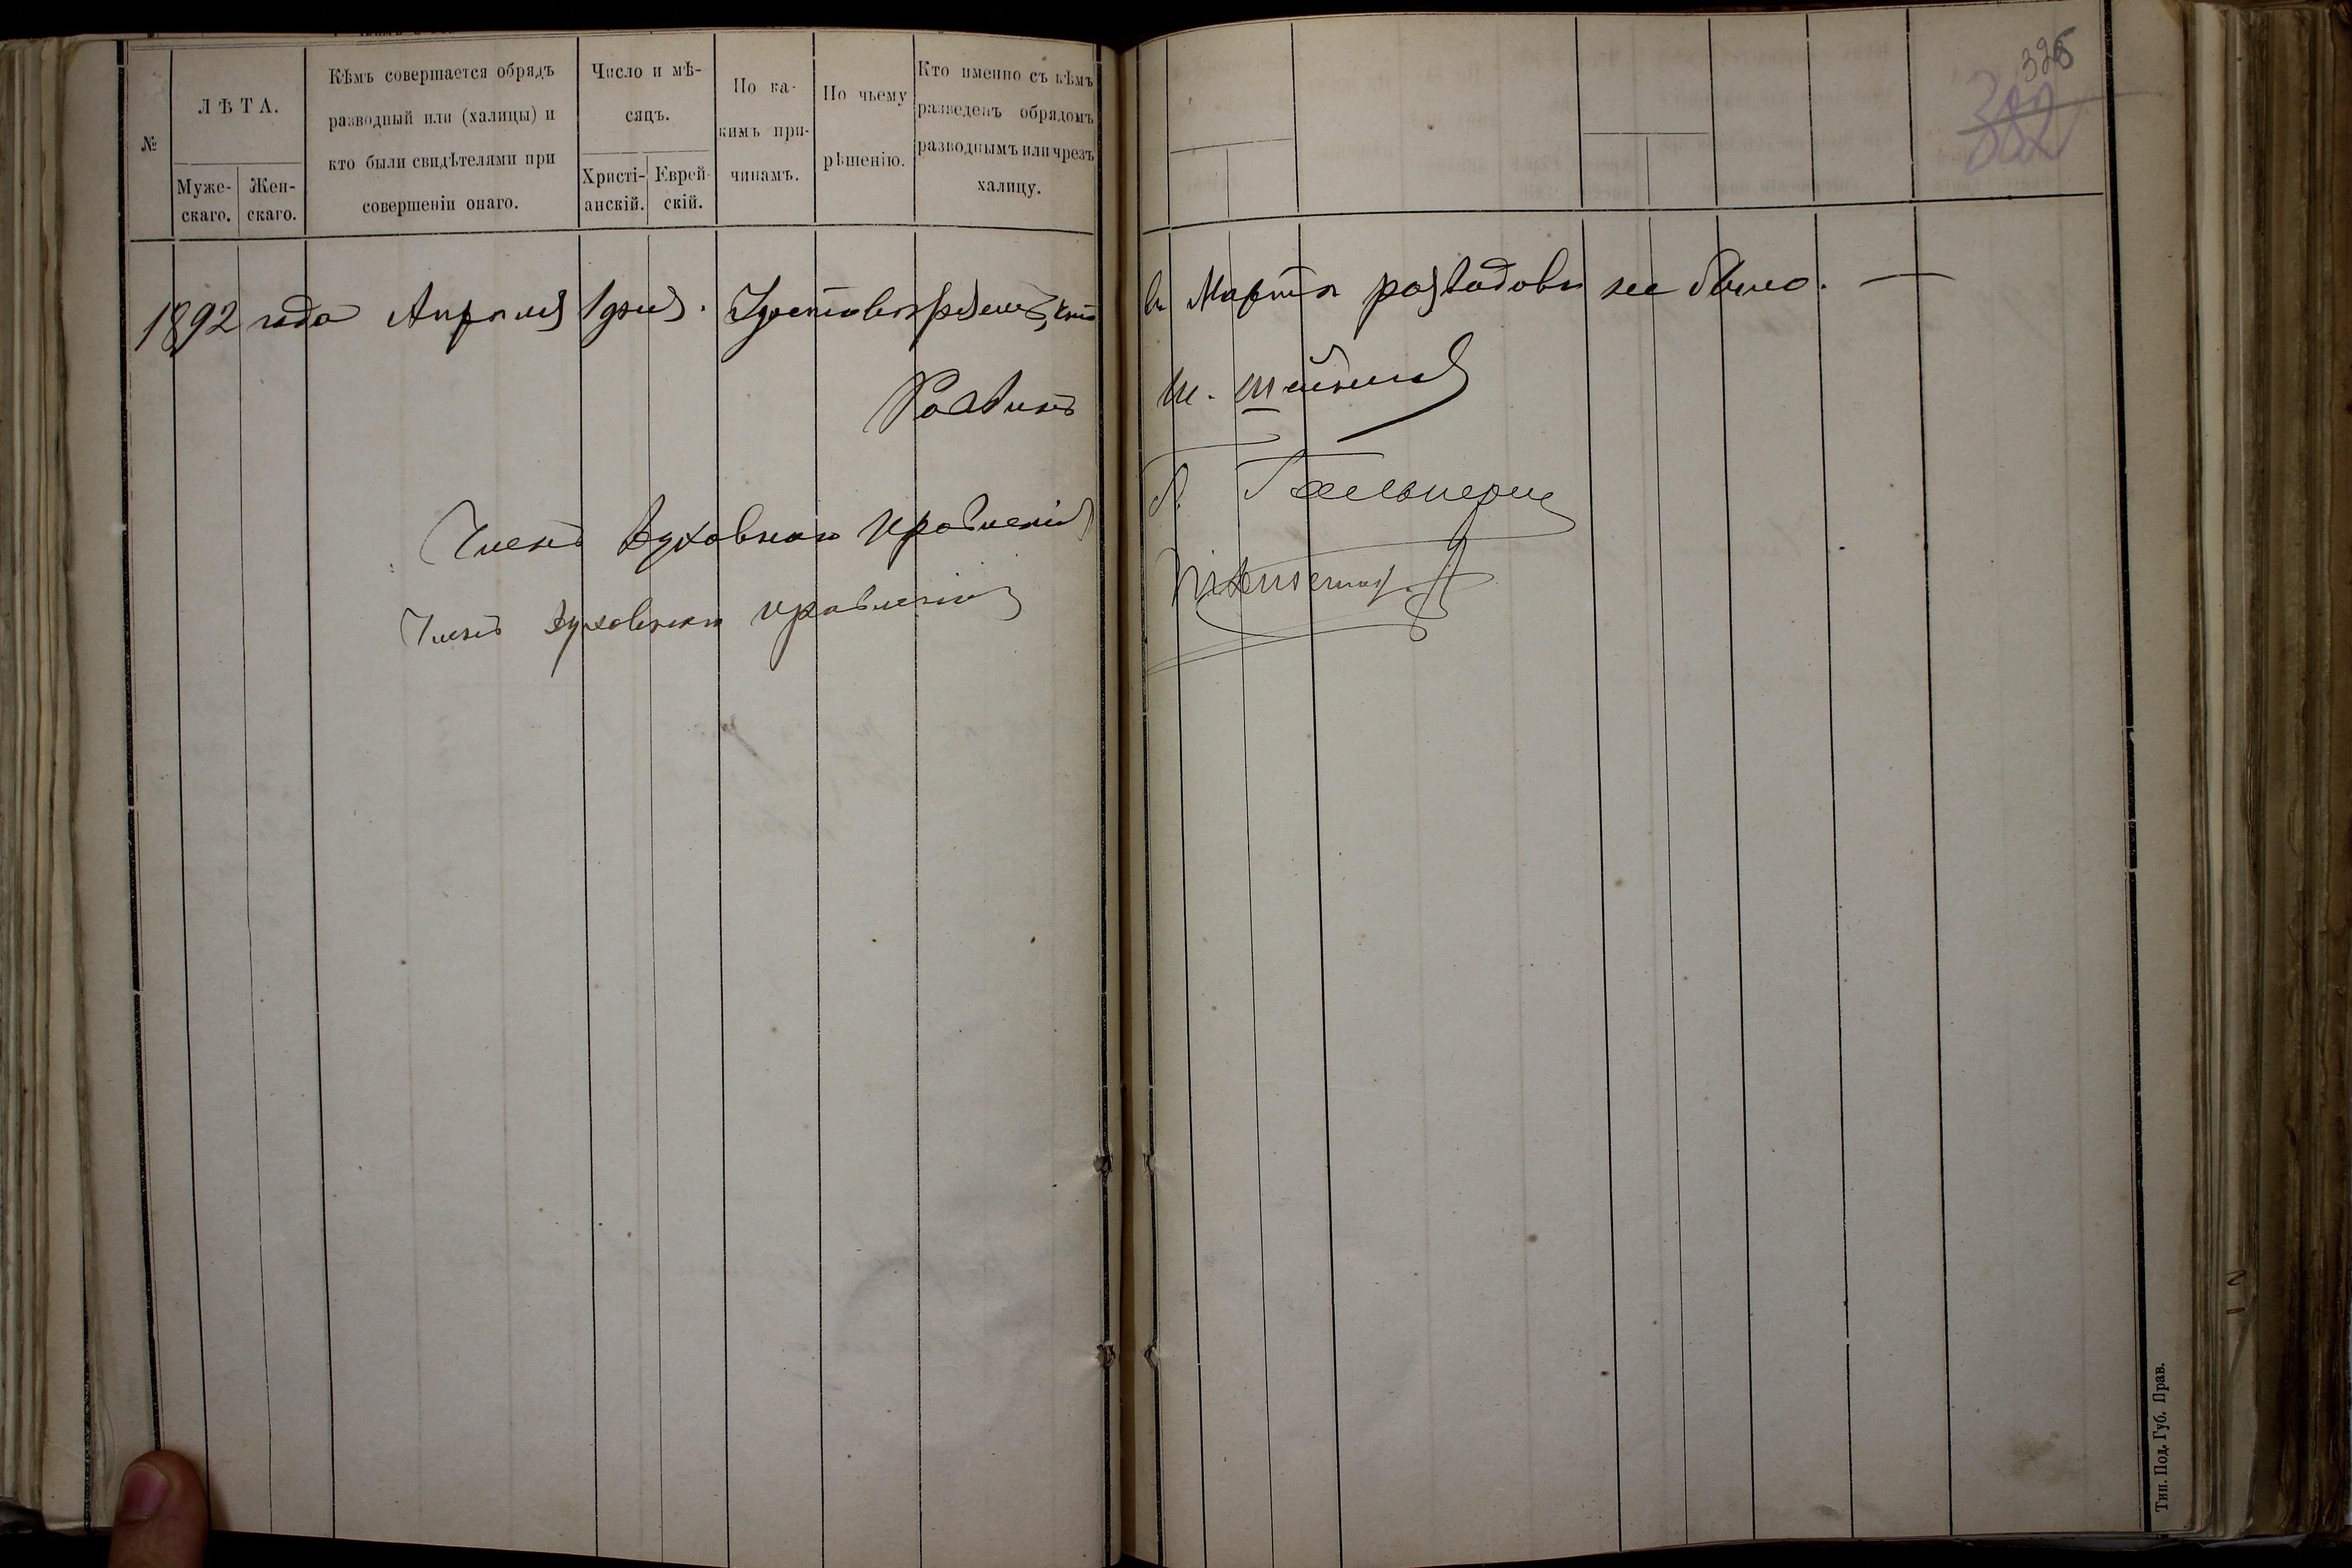 №
ЛѢТА.
Муже-
скаго.
Жен-
скаго.
Кѣмъ совершается обрядъ
разводный или (халицы) и
кто были свидѣтелями при
совершеніи онаго.
Число и мѣ-
сяцъ.
Христі-
анскій.
Еврей-
скій.
По ка-
кимъ при-
чинамъ.
По чьему
рѣшенію.
Кто именно съ кѣмъ
разведенъ обрядомъ
разводнымъ или чрезъ
халицу.
1892 года Апрѣля 1 дня. Удостовѣряемъ, что
Раввинъ
Членъ духовнаго правленія
Членъ духовнаго правленія
382
въ Мартѣ разводовъ не было. —
Ш.
Гальперин
Тип. Под. Губ. Прав.